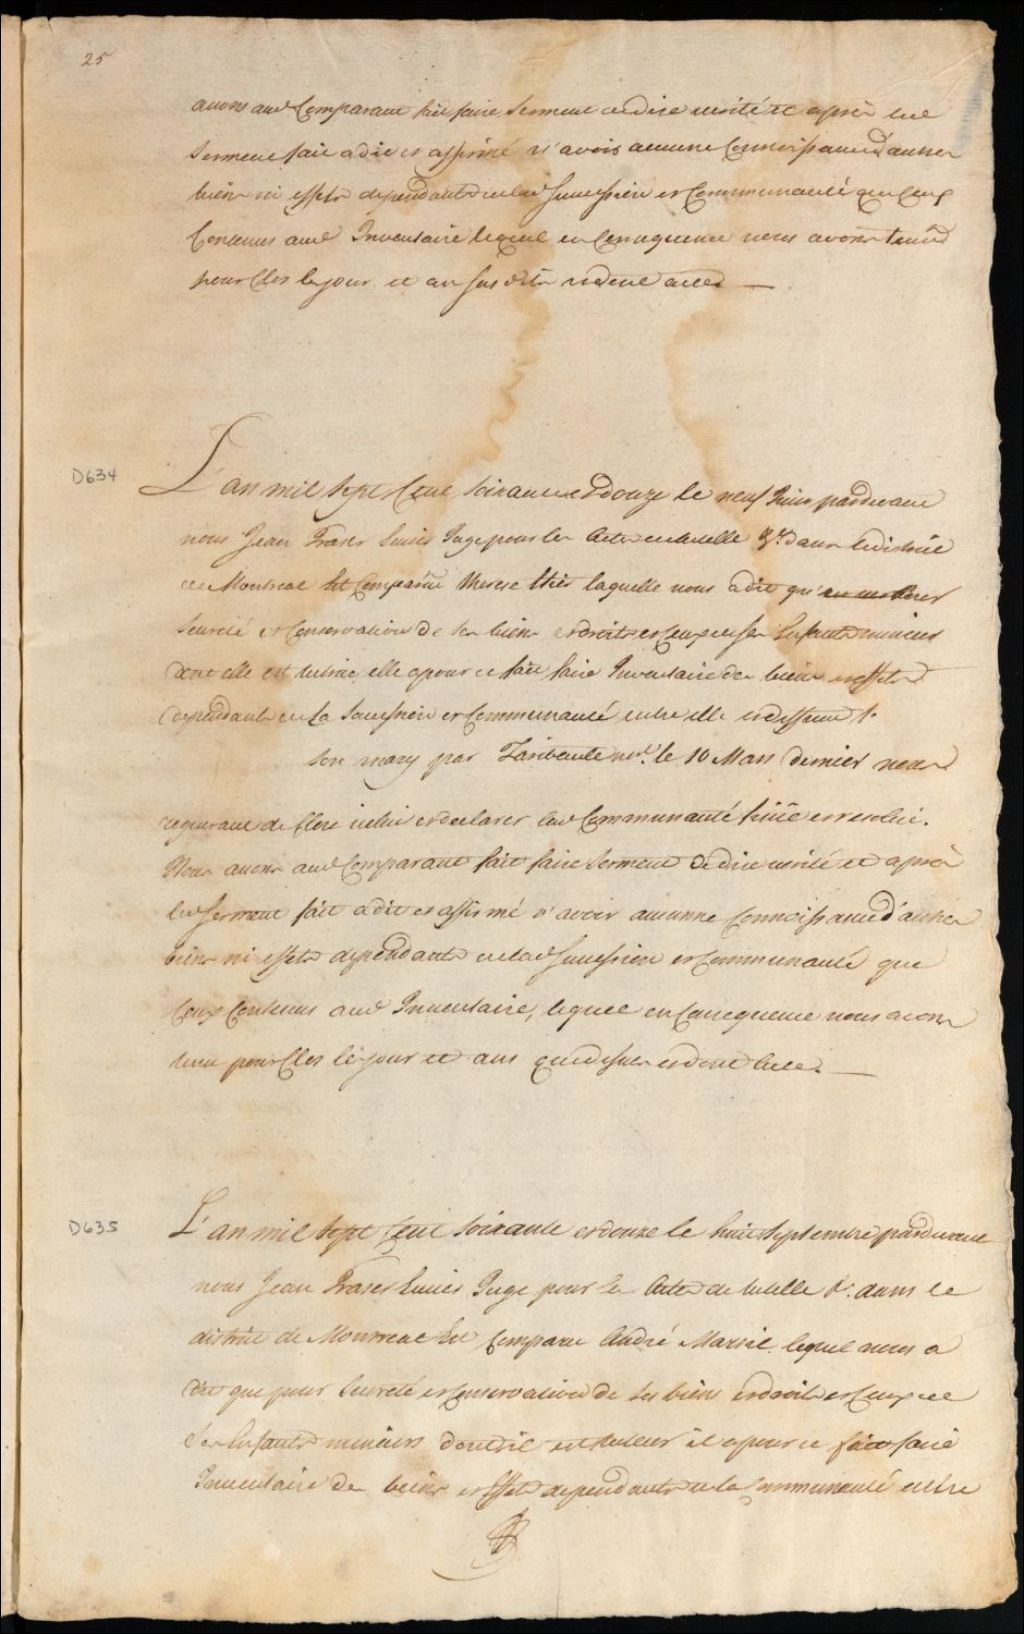 25
avons aud Comparant fait faire serment de dire verité et après led
serment fait a dit et affirmé n'avoir aucune Connoissance d'autres
biens ni effets dependants de lad Succession et Communauté que Ceux
Contenus aud Inventaire lequel en Consequence nous avons tenu
pour Clos le jour et an sus dits et dont acte
D634
L'an mil Sept Cent soixante et douze le neuf Juin pardevant
nous Jean Fraser Ecuier Juge pour les Actes de tutelle &c. dans le district
de Montreal Est Comparue Therese laquelle nous a dit qu'
seureté et Conservation de ses biens et droits et Ceux de ses Enfants mineurs
dont elle est tutrice elle a pour ce fait faire Inventaire des biens et effets
dependants de la Succession et Communauté entre elle et deffunt
son mary par not. le 10 Mars dernier nous
requerant de Clore icelui et declarer lad Communauté finie et resolüe.
Nous avons aud Comparant fait faire serment de dire verité et après
led serment fait a dit et affirmé n'avoir aucunne Connoissance d'autres
biens ni effets dependants de lad Succession et Communauté que
Ceux Contenus aud Inventaire, lequel en Consequence nous avons
tenu pour Clos le jour et ans que dessus et dont acte.
D635
L'an mil Sept Cent soixante et douze le huit Septembre pardevant
nous Jean Fraser Ecuier Juge pour les Actes de tutelle &c. dans le
district de Montreal Est Comparu André Marsil lequel nous a
dit que pour seureté et Conservation de ses biens et droits et Ceux de
ses Enfants mineurs dont il est tuteur il a pour ce fait faire
Inventaire des biens et Effets dependants de la Communauté entre